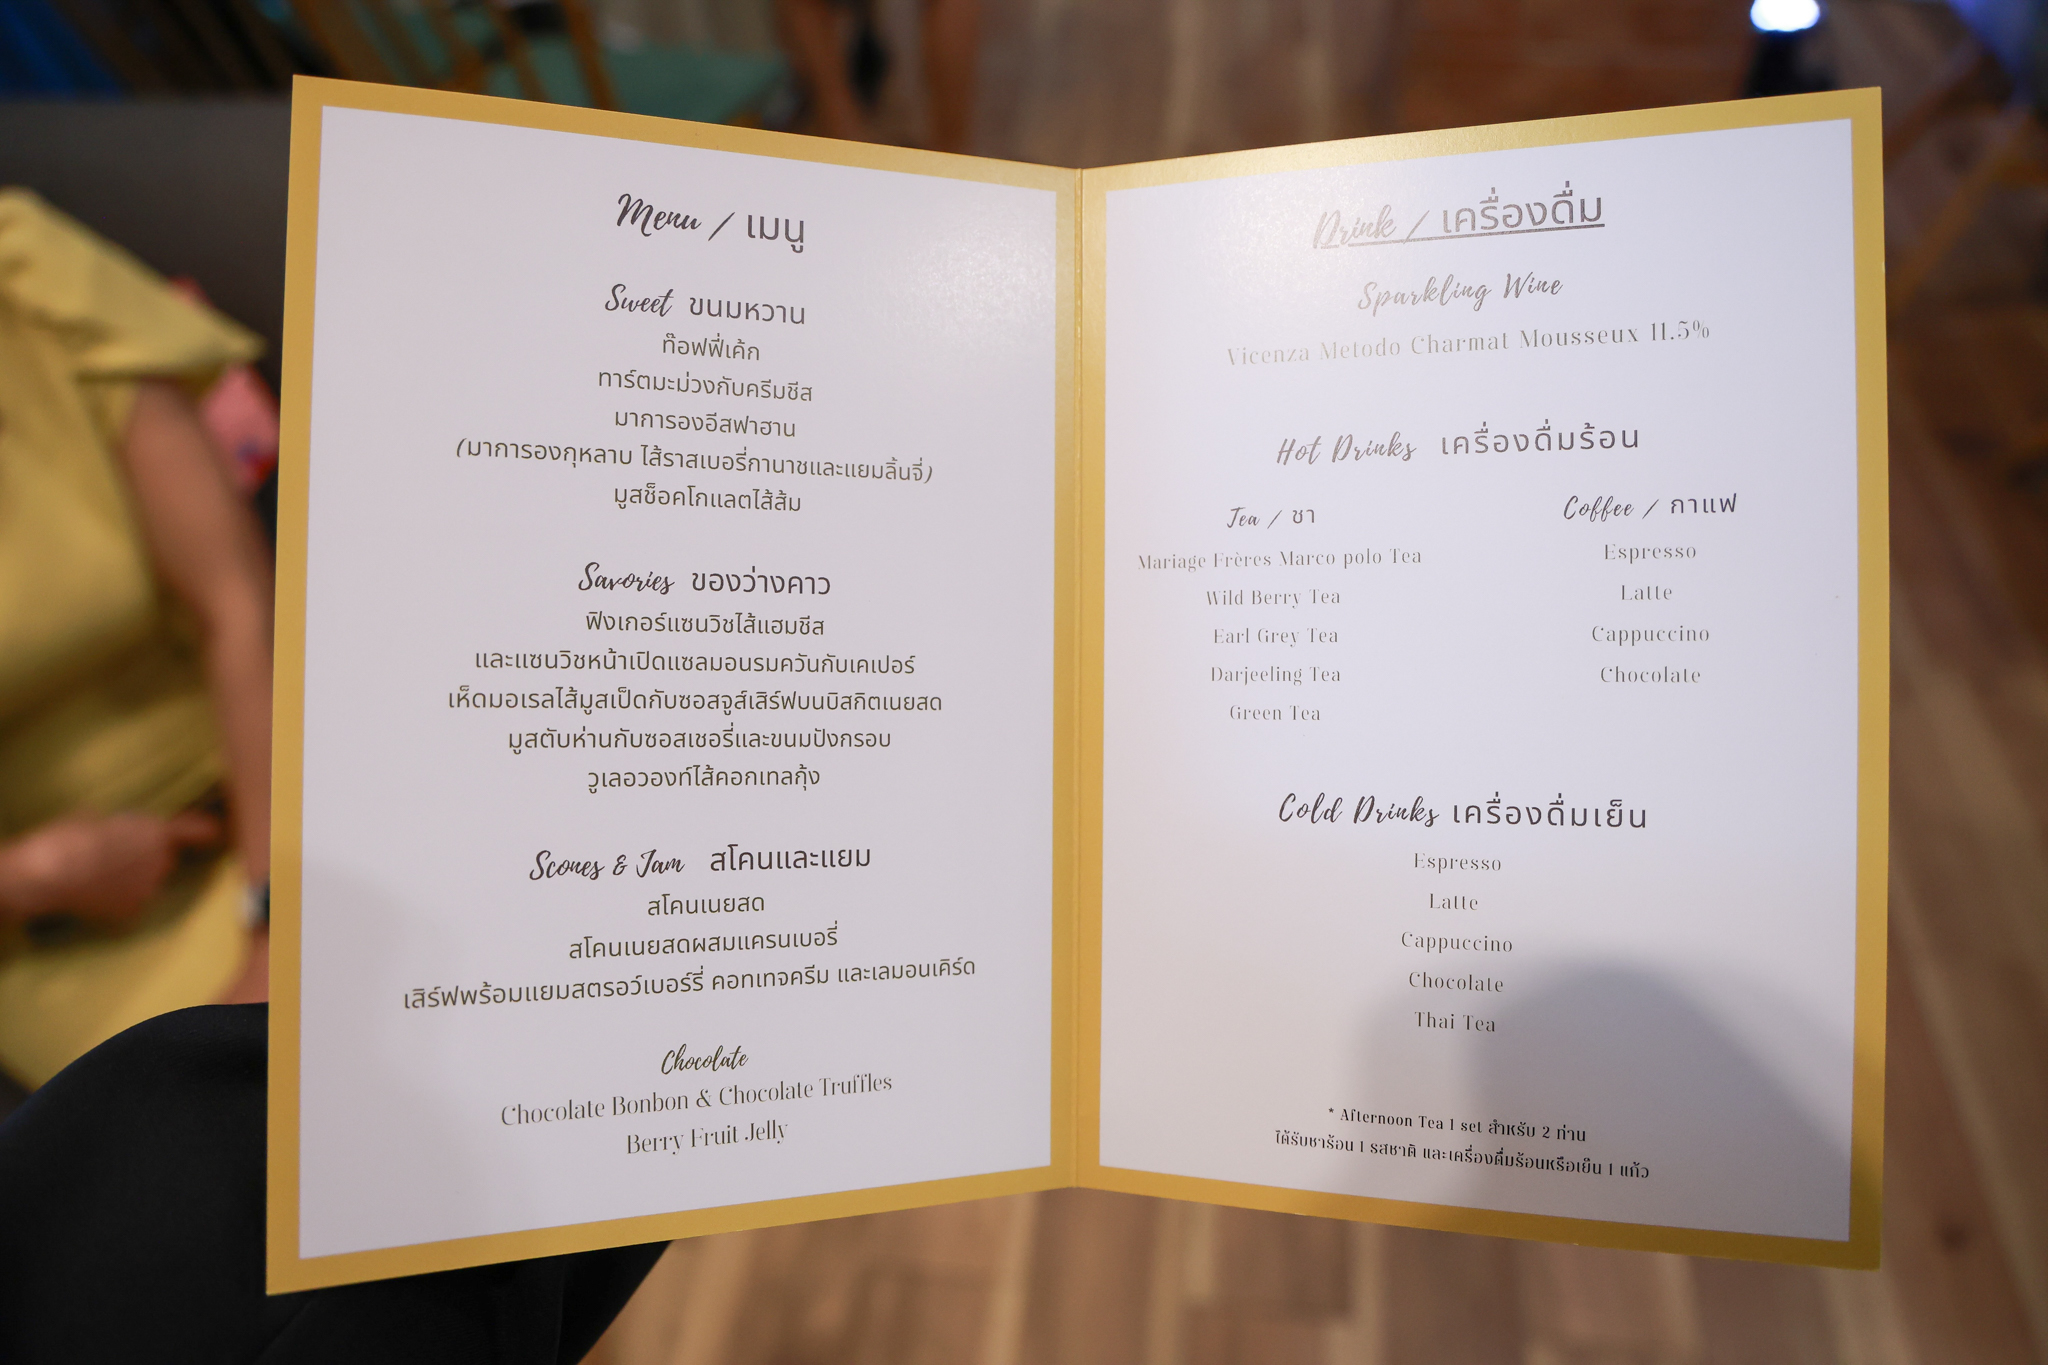 Menu / เมนู
Sweet ขนมหวาน
ท๊อฟฟี่เค้ก
ทาร์ตมะม่วงกับครีมชีส
มาการองอีสฟาฮาน
(มาการองกุหลาบ ไส้ราสเบอรี่กานาชและแยมลิ้นจี่)
มูสช็อคโกแลตไส้ส้ม
Savories ของว่างคาว
ฟิงเกอร์แซนวิชไส้แฮมชีส
และแซนวิชหน้าเปิดแซลมอนรมควันกับเคเปอร์
เห็ดมอเรลไส้มูสเป็ดกับซอสจูส์เสิร์ฟบนบิสกิตเนยสด
มูสตับห่านกับซอสเชอรี่และขนมปังกรอบ
วูเลอวองท์ไส้คอกเทลกุ้ง
Scones & Jam สโคนและแยม
สโคนเนยสด
สโคนเนยสดผสมแครนเบอรี่
เสิร์ฟพร้อมแยมสตรอว์เบอร์รี่ คอทเทจครีม และเลมอนเคิร์ด
Chocolate
Chocolate Bonbon & Chocolate Truffles
Berry Fruit Jelly
Drink / เครื่องดื่ม
Sparkling Wine
Vicenza Metodo Charmat Mousseux 11.5%
Hot Drinks เครื่องดื่มร้อน
Tea / ชา
Mariage Frères Marco polo Tea
Wild Berry Tea
Earl Grey Tea
Darjeeling Tea
Green Tea
Coffee / กาแฟ
Espresso
Latte
Cappuccino
Chocolate
Cold Drinks เครื่องดื่มเย็น
Espresso
Latte
Cappuccino
Chocolate
Thai Tea
* Afternoon Tea 1 set สำหรับ 2 ท่าน
ได้รับชาร้อน 1 รสชาติ และเครื่องดื่มร้อนหรือเย็น 1 แก้ว